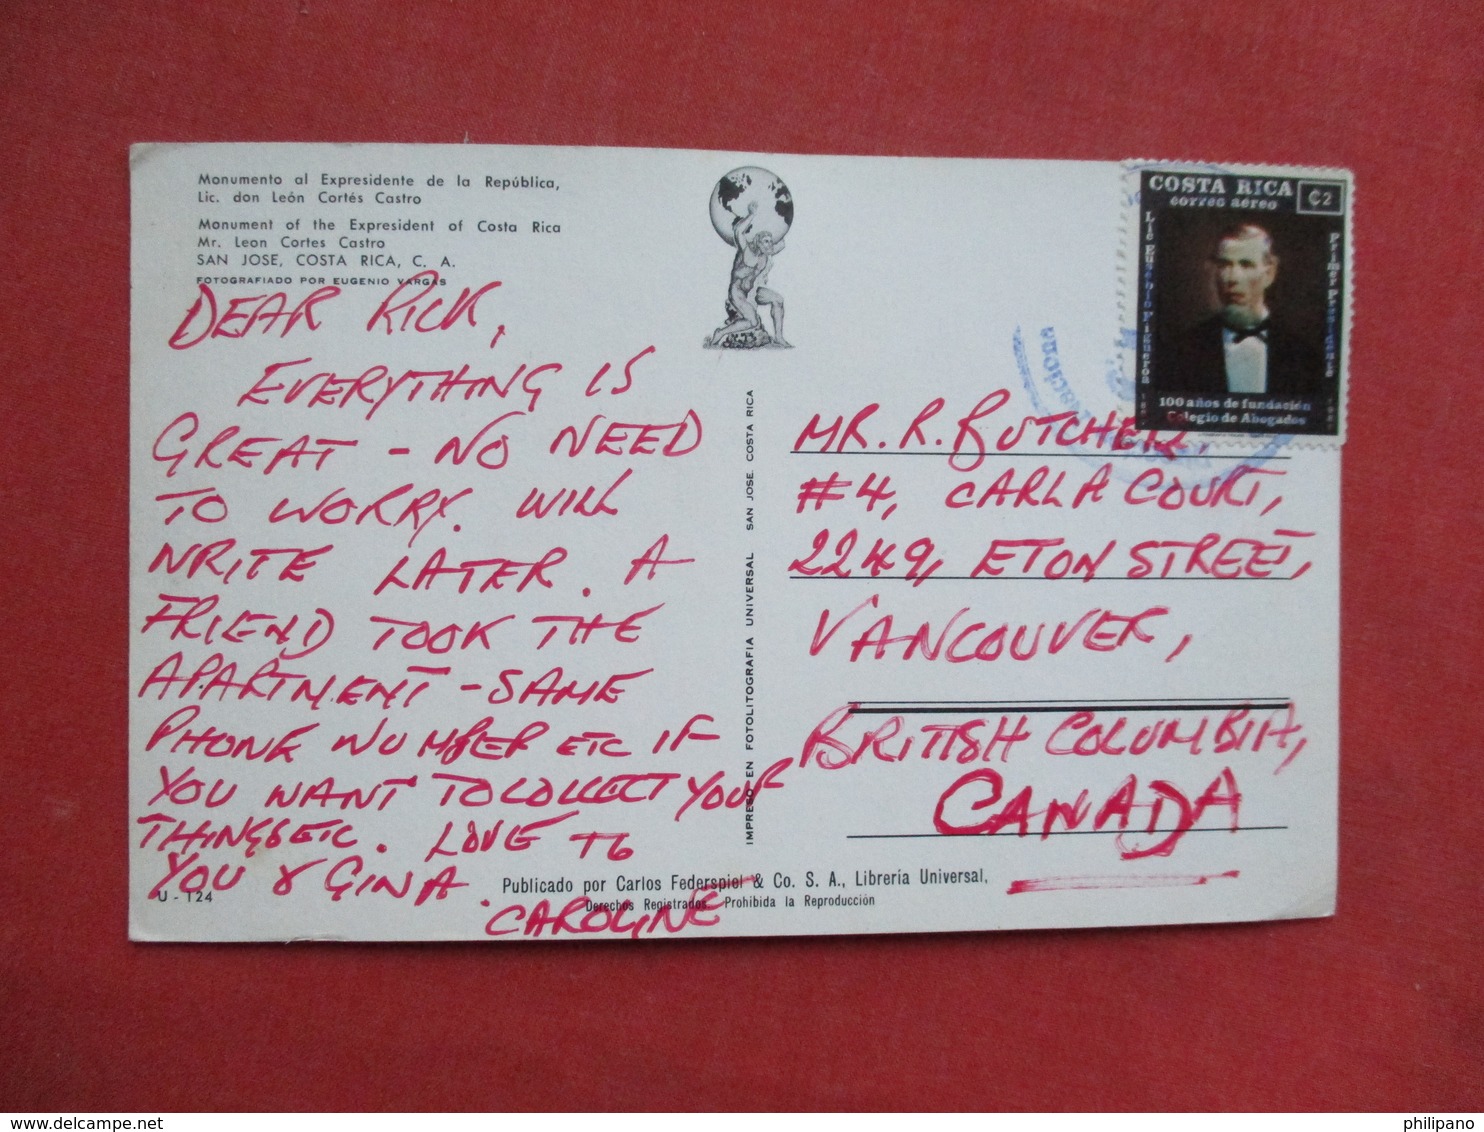 Monumento al Expresidente de la República,
Lic. don León Cortés Castro
Monument of the Expresident of Costa Rica
Mr. Leon Cortes Castro
SAN JOSE, COSTA RICA, C. A.
FOTOGRAFIADO POR EUGENIO VARGAS
DEAR RICK,
EVERYTHING IS
GREAT - NO NEED
TO WORRY. WILL
WRITE LATER. A
FRIEND TOOK THE
APARTMENT - SAME
PHONE NUMBER ETC IF
YOU WANT TO COLLECT YOUR
THINGS ETC. LOVE TO
YOU & GINA.
CAROLINE
U - 124
Publicado por Carlos Federspiel & Co. S. A., Librería Universal,
Derechos Registrados. Prohibida la Reproducción
IMPRESO EN FOTOLITOGRAFIA UNIVERSAL SAN JOSE. COSTA RICA
COSTA RICA ₡2
correo aéreo
Lic Eusebio Figueroa
Primer Presidente
100 años de fundación
Colegio de Abogados
MR. R. BUTCHER,
#4, CARLA COURT,
2249, ETON STREET,
VANCOUVER,
BRITISH COLUMBIA,
CANADA
philipano